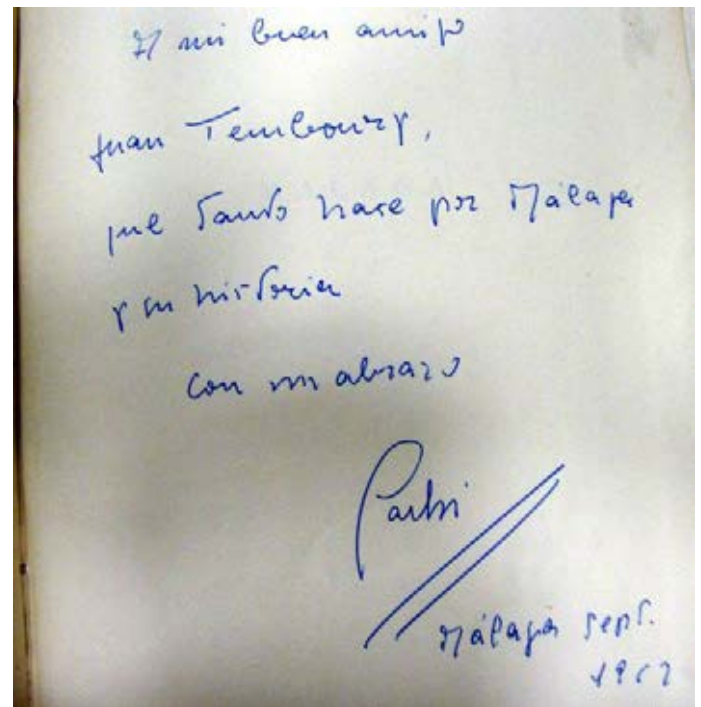 A mi buen amigo
Juan Temboury,
que tanto hace por Málaga
y su historia
con un abrazo
Málaga sept.